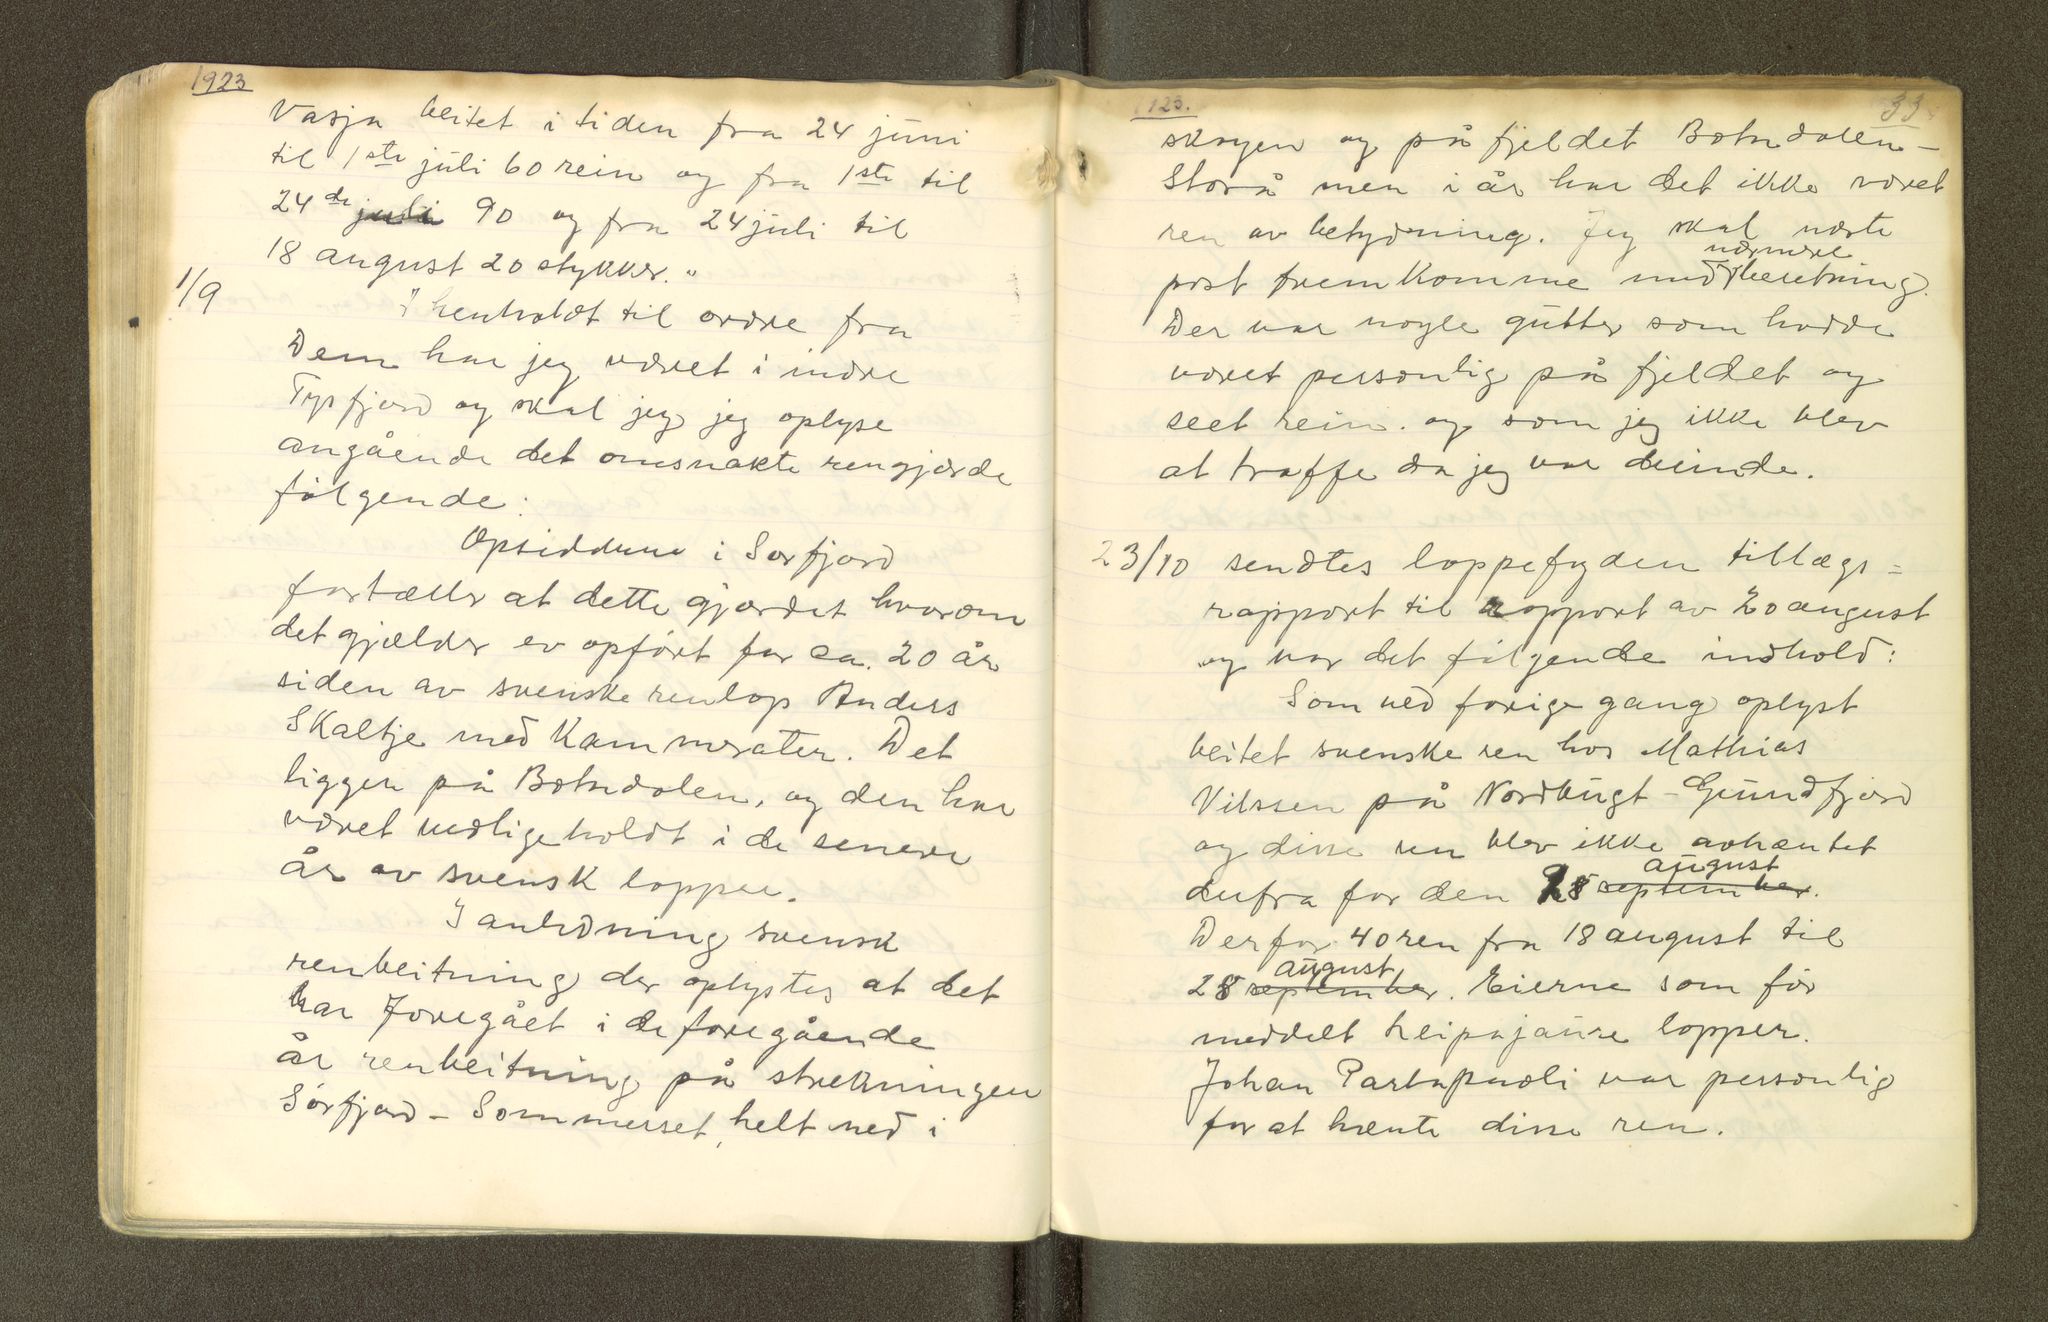 1923
Vasja beitet i tiden fra 24 juni
til 1ste juli 60 rein og fra 1ste til
24de juli 90 og fra 24 juli til
18 august 20 stykker."
1/9
I henholdt til ordre fra
Dem har jeg været i indre
Tysfjord og skal jeg jeg oplyse
angående det omsnakte rengjærde
følgende:
Opsidderne i Sørfjord
fortæller at dette gjærdet hvorom
det gjælder er opført for ca. 20 år
siden av svenske renlap Anders
Skaltje med Kammerater. Det
ligger på Botndalen, og den har
været vedligeholdt i de senere
år av svensk lapper.
I anledning svensk
renbeitning der oplystes at det
har foregået i de foregående
år renbeitning på strekningen
Sørfjord - Sommerset, helt ned i
1923.
33
skogen og på fjeldet Botndalen -
Storå men i år har det ikke været
ren av betydning. Jeg skal næste
post fremkomme med nærmere beretning.
Der var nogle gutter som hadde
været personlig på fjeldet og
seet rein. og som jeg ikke blev
at traffe da jeg var derinde.
23/10 sendtes lappefogden tillægs=
rapport til rapport av 20 august
og var det følgende indhold:
Som ved forige gang oplyst
beitet svenske ren hos Mathias
Nilssen på Nordbugt - Grundfjord
og disse ren blev ikke avhæntet
derfra før den 28 september august.
Derfor 40 ren fra 18 august til
28 september august. Eierne som før
meddelt Leipajaure lapper.
Johan Partapuoli var personlig
for at hænte disse ren.